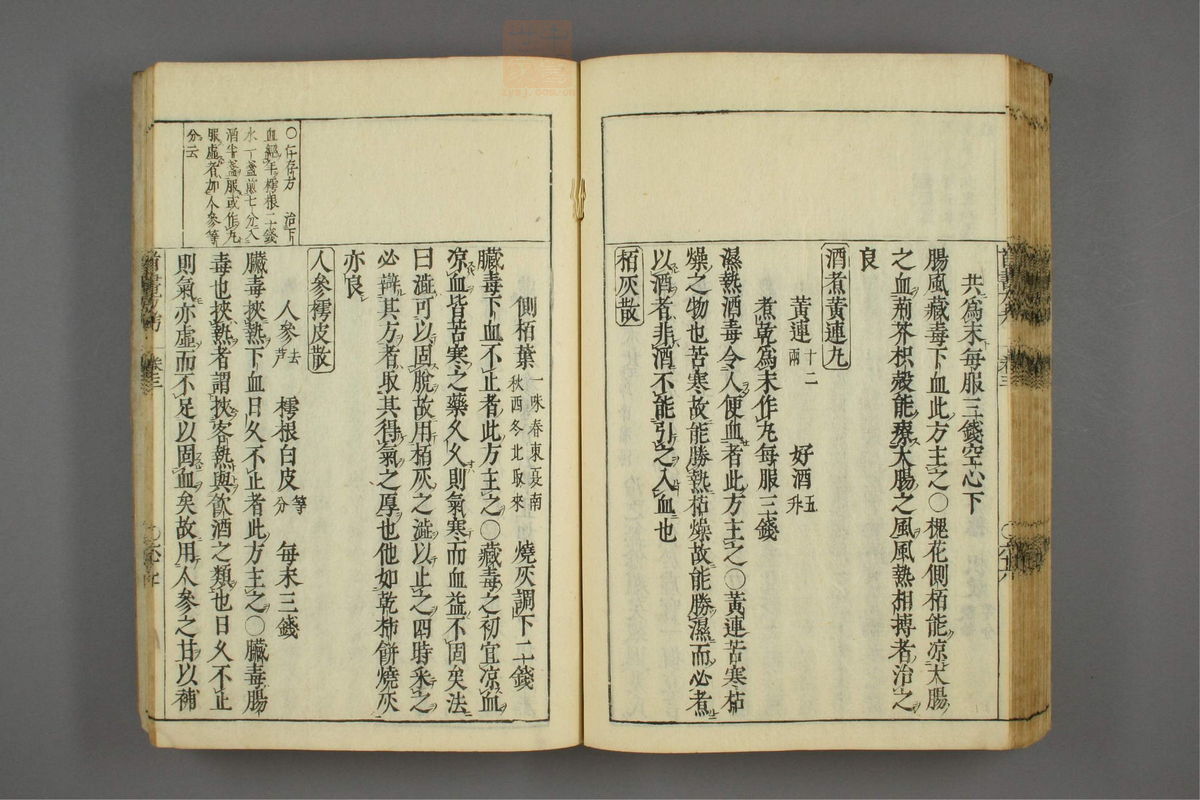 共爲末每服三錢空心下
腸風藏毒下血此方主之○槐花側栢能凉大腸
之血荊芥枳殼能療大腸之風風熱相搏者治之
良
酒煮黃連丸
黃連十二兩 好酒五升
煮乾爲末作丸每服三錢
濕熱酒毒令人便血者此方主之○黃連苦寒枯
燥之物也苦寒故能勝熱枯燥故能勝濕而必煮
以酒者非酒不能引之入血也
栢灰散
側栢葉一味春東夏南秋西冬北取來 燒灰調下二錢
臟毒下血不止者此方主之○藏毒之初宜凉血
凉血皆苦寒之藥久久則氣寒而血益不固矣法
曰澁可以固脫故用栢灰之澁以止之四時采之
必辯其方者取其得氣之厚也他如乾柿餅燒灰
亦良
人參樗皮散
人參去芦 樗根白皮等分 每末三錢
臟毒挾熱下血日久不止者此方主之○臟毒腸
毒也挾熱者謂挾客熱與飮酒之類也日久不止
則氣亦虛而不足以固血矣故用人參之甘以補
○仁存方 治下
血經年樗根二十錢
水一盞煎七分入
酒半盞服或作丸
服虛者加人參等
分云
卷三
卷三
zysj.com.cn